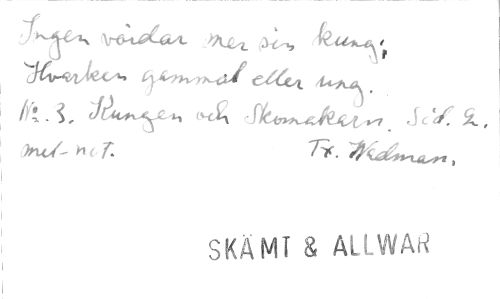 Ingen vördar mer sin kung;
Hvarken gammal eller ung.
No. 3. Kungen och Skomakarn. Sid. 2.
mel-not. Tx. Wadman.
SKÄMT & ALLWAR